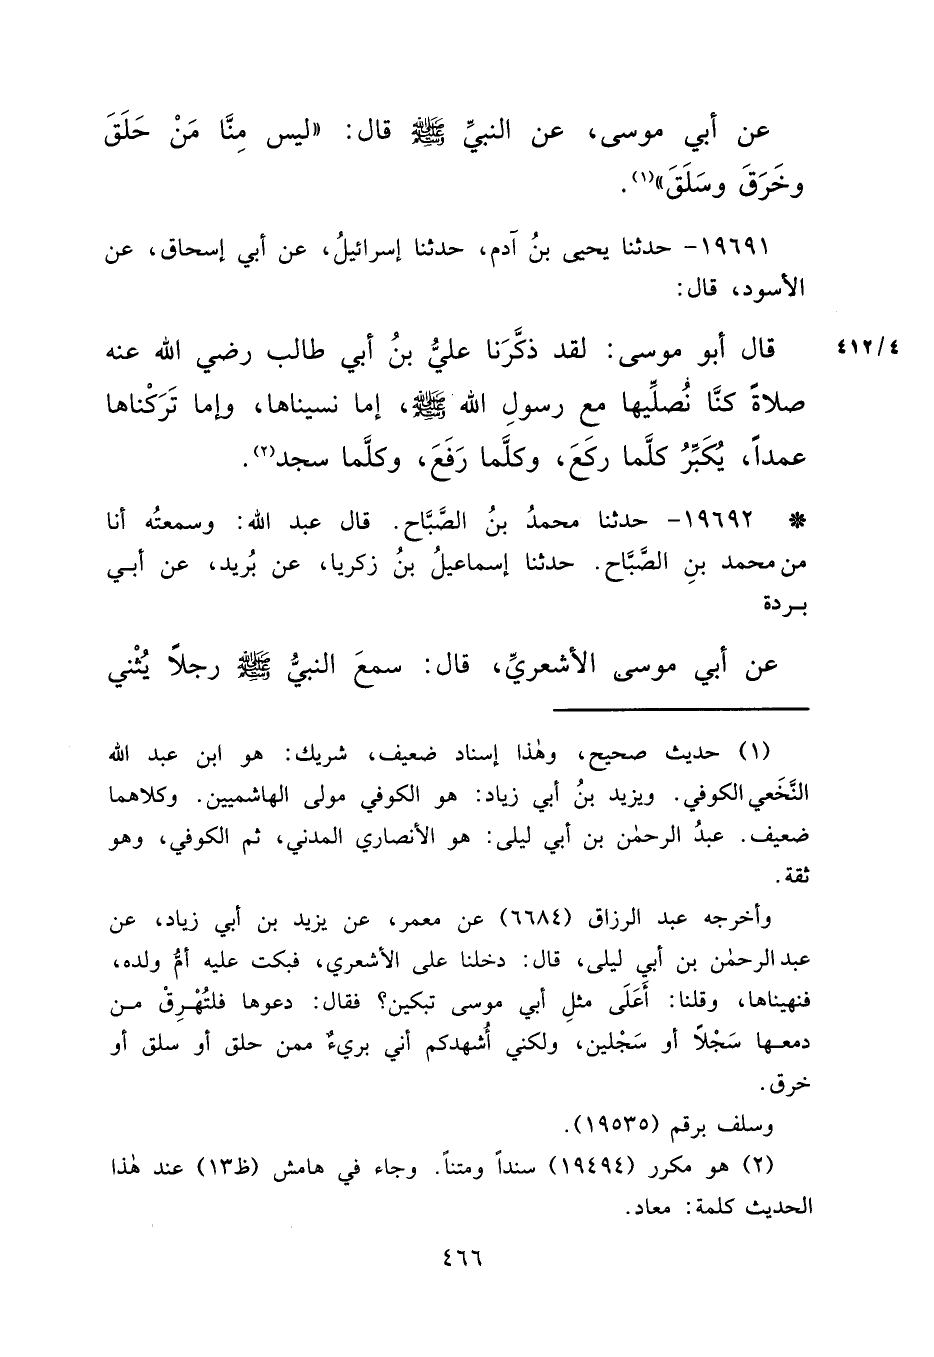 عن أبي موسى، عن النبيِّ ﷺ قال: «ليس مِنَّا مَنْ حَلَقَ
وخَرَقَ وسَلَقَ»(١).
١٩٦٩١- حدثنا يحيى بنُ آدم، حدثنا إسرائيلُ، عن أبي إسحاق، عن
الأسود، قال:
قال أبو موسى: لقد ذكَّرَنا عليُّ بنُ أبي طالب رضي الله عنه
٤١٢/٤
صلاةً كنَّا نُصلِّيها مع رسولِ الله ﷺ، إما نسيناها، وإما تَرَكْناها
عمداً، يُكَبِّرُ كلَّما ركَعَ، وكلَّما رَفَعَ، وكلَّما سجد(٢).
* ١٩٦٩٢- حدثنا محمدُ بنُ الصَّبَّاح. قال عبد الله: وسمعتُه أنا
من محمد بنِ الصَّبَّاح. حدثنا إسماعيلُ بنُ زكريا، عن بُريد، عن أبي
بردة
عن أبي موسى الأشعريِّ، قال: سمعَ النبيُّ ﷺ رجلاً يُثْني
(١) حديث صحيح، وهٰذا إسناد ضعيف، شريك: هو ابن عبد الله
النَّخَعي الكوفي. ويزيد بنُ أبي زياد: هو الكوفي مولى الهاشميين. وكلاهما
ضعيف. عبدُ الرحمٰن بن أبي ليلى: هو الأنصاري المدني، ثم الكوفي، وهو
ثقة.
وأخرجه عبد الرزاق (٦٦٨٤) عن معمر، عن يزيد بن أبي زياد، عن
عبد الرحمٰن بن أبي ليلى، قال: دخلنا على الأشعري، فبكت عليه أمُّ ولده،
فنهيناها، وقلنا: أَعَلَى مثلِ أبي موسى تبكين؟ فقال: دعوها فلتُهْرِقْ من
دمعها سَجْلاً أو سَجْلين، ولكني أُشهدكم أني بريءٌ ممن حلق أو سلق أو
خرق.
وسلف برقم (١٩٥٣٥).
(٢) هو مكرر (١٩٤٩٤) سنداً ومتناً. وجاء في هامش (ظ١٣) عند هٰذا
الحديث كلمة: معاد.
٤٦٦